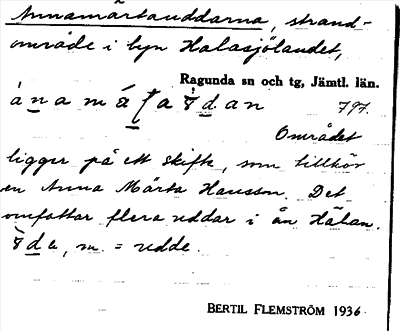 Annamärtauddarna, strand-
område i byn Halasjölandet,
Ragunda sn och tg, Jämtl. län.
797.
Området
ligger på ett skifte, som tillhör
en Anna Märta Hansson. Det
omfattar flera uddar i ån Hålan.
m. = udde.
BERTIL FLEMSTRÖM 1936